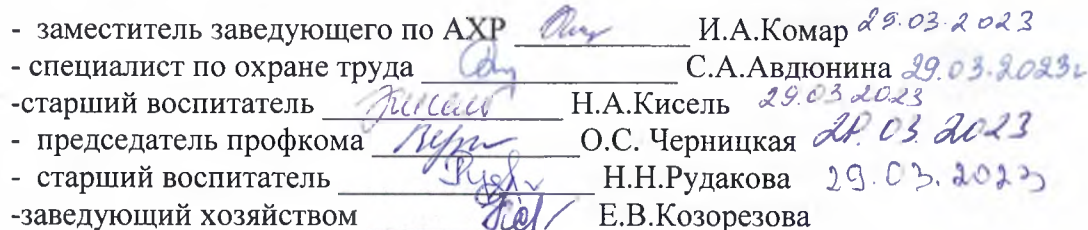 - заместитель заведующего по АХР И.А.Комар 29.03.2023
- специалист по охране труда С.А.Авдюнина 29.03.2023г
-старший воспитатель Кисель Н.А.Кисель 29.03 2023
- председатель профкома О.С. Черницкая 03 2023
- старший воспитатель Н.Н.Рудакова 29.03.2023
-заведующий хозяйством Е.В.Козорезова